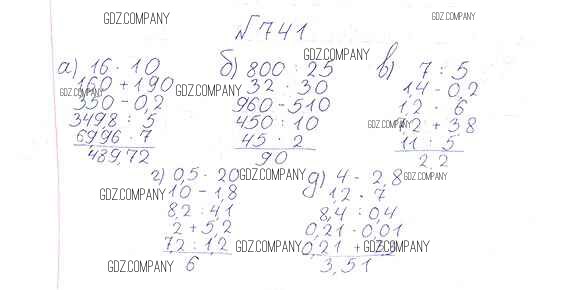 №741
а) 16 · 10
160 + 190
350 - 0,2
349,8 : 5
69,96 · 7
489,72
б) 800 : 25
32 · 30
960 - 510
450 : 10
45 · 2
90
в) 7 : 5
1,4 - 0,2
1,2 · 6
7,2 + 3,8
11 : 5
2,2
г) 0,5 · 20
10 - 1,8
8,2 : 4,1
2 + 5,2
7,2 : 1,2
6
д) 4 - 2,8
1,2 · 7
8,4 : 0,4
0,21 · 0,01
0,21 +
3,51
GDZ.COMPANY
GDZ.COMPANY
GDZ.COMPANY
GDZ.COMPANY
GDZ.COMPANY
GDZ.COMPANY
GDZ.COMPANY
GDZ.COMPANY
GDZ.COMPANY
GDZ.COMPANY
GDZ.COMPANY
GDZ.COMPANY